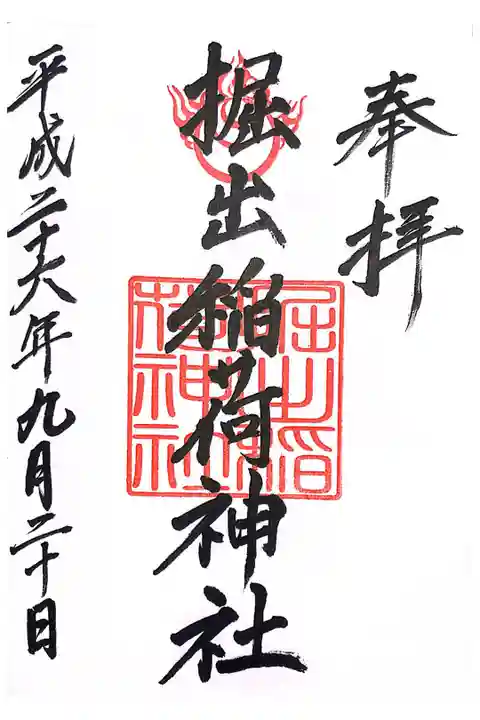 奉拝
掘出稲荷神社
平成二十六年九月二十日